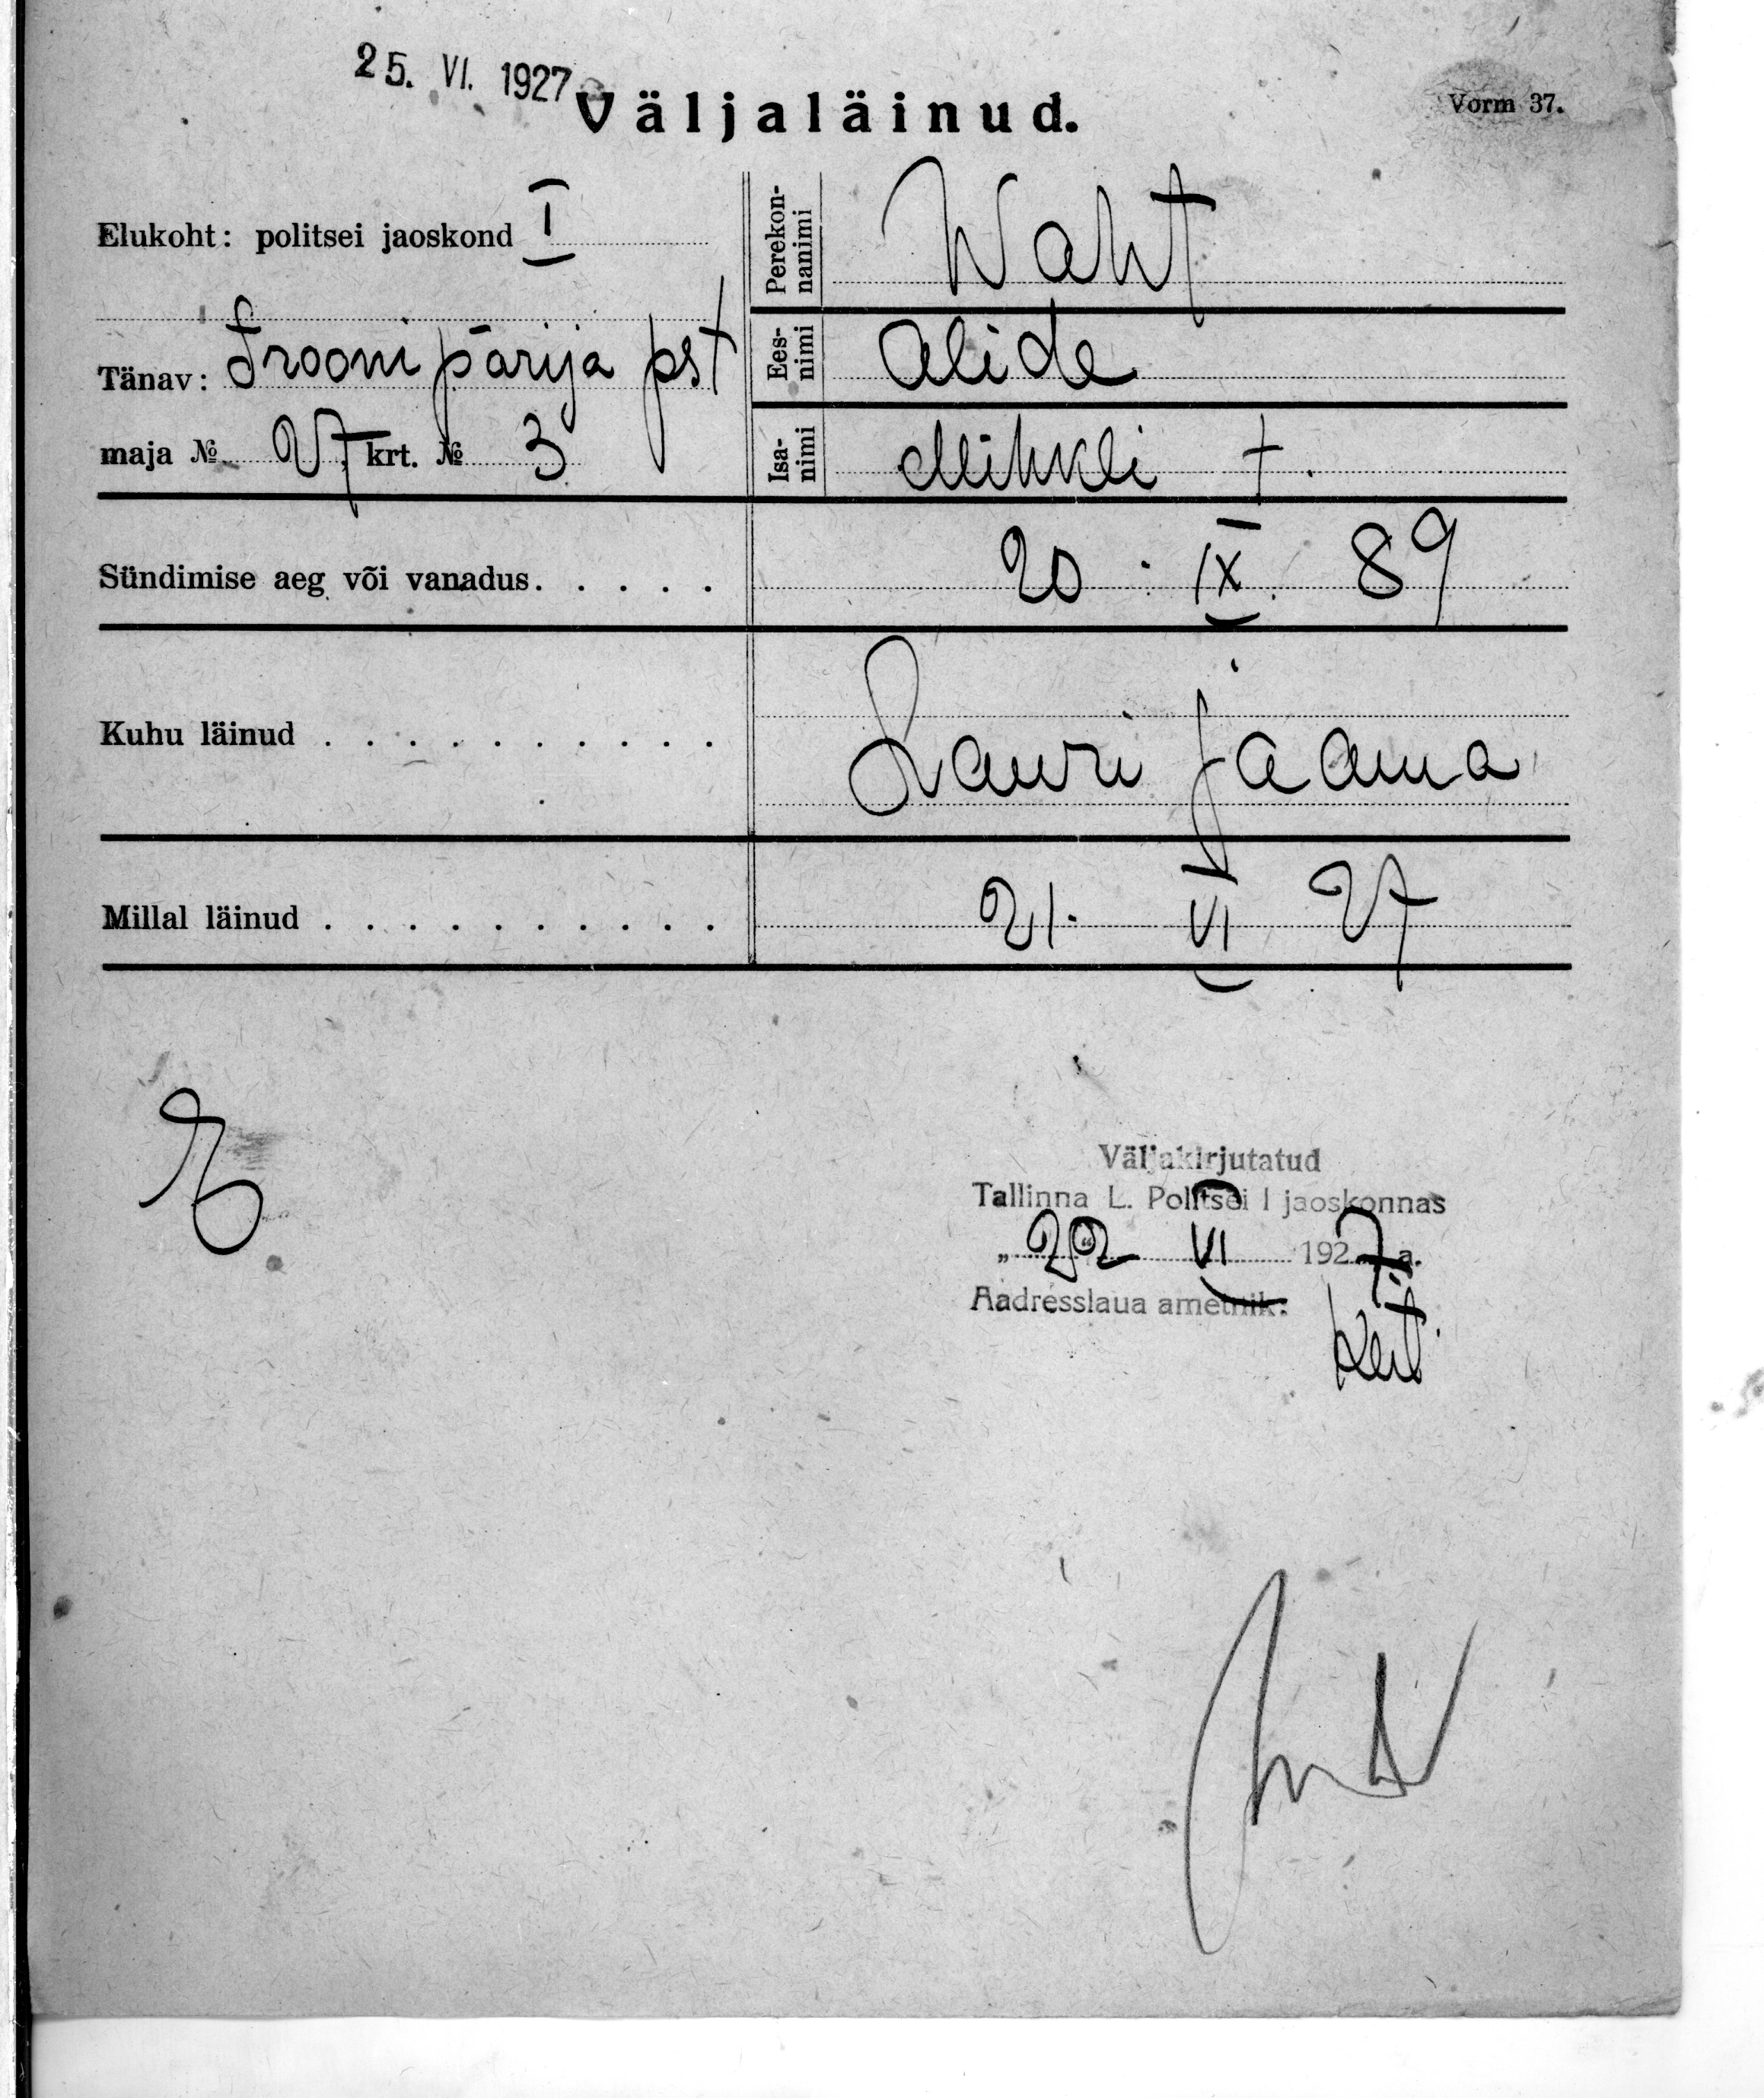 25. VI. 1927
Väljaläinud.
Vorm 37.
Elukoht: politsei jaoskond I
Tänav: Trooni pärija pst
maja № 27 krt. № 3
Perekonnanimi Waht
Eesnimi Alide
Isanimi Mihkli †.
Sündimise aeg või vanadus. . . . . 20. IX. 89
Kuhu läinud . . . . . . . . . . Lauri jaama
Millal läinud . . . . . . . . . . 21. VI 27
Väljakirjutatud
Tallinna L. Politsei I jaoskonnas
„22“ VI 1927 a.
Aadresslaua ametnik: